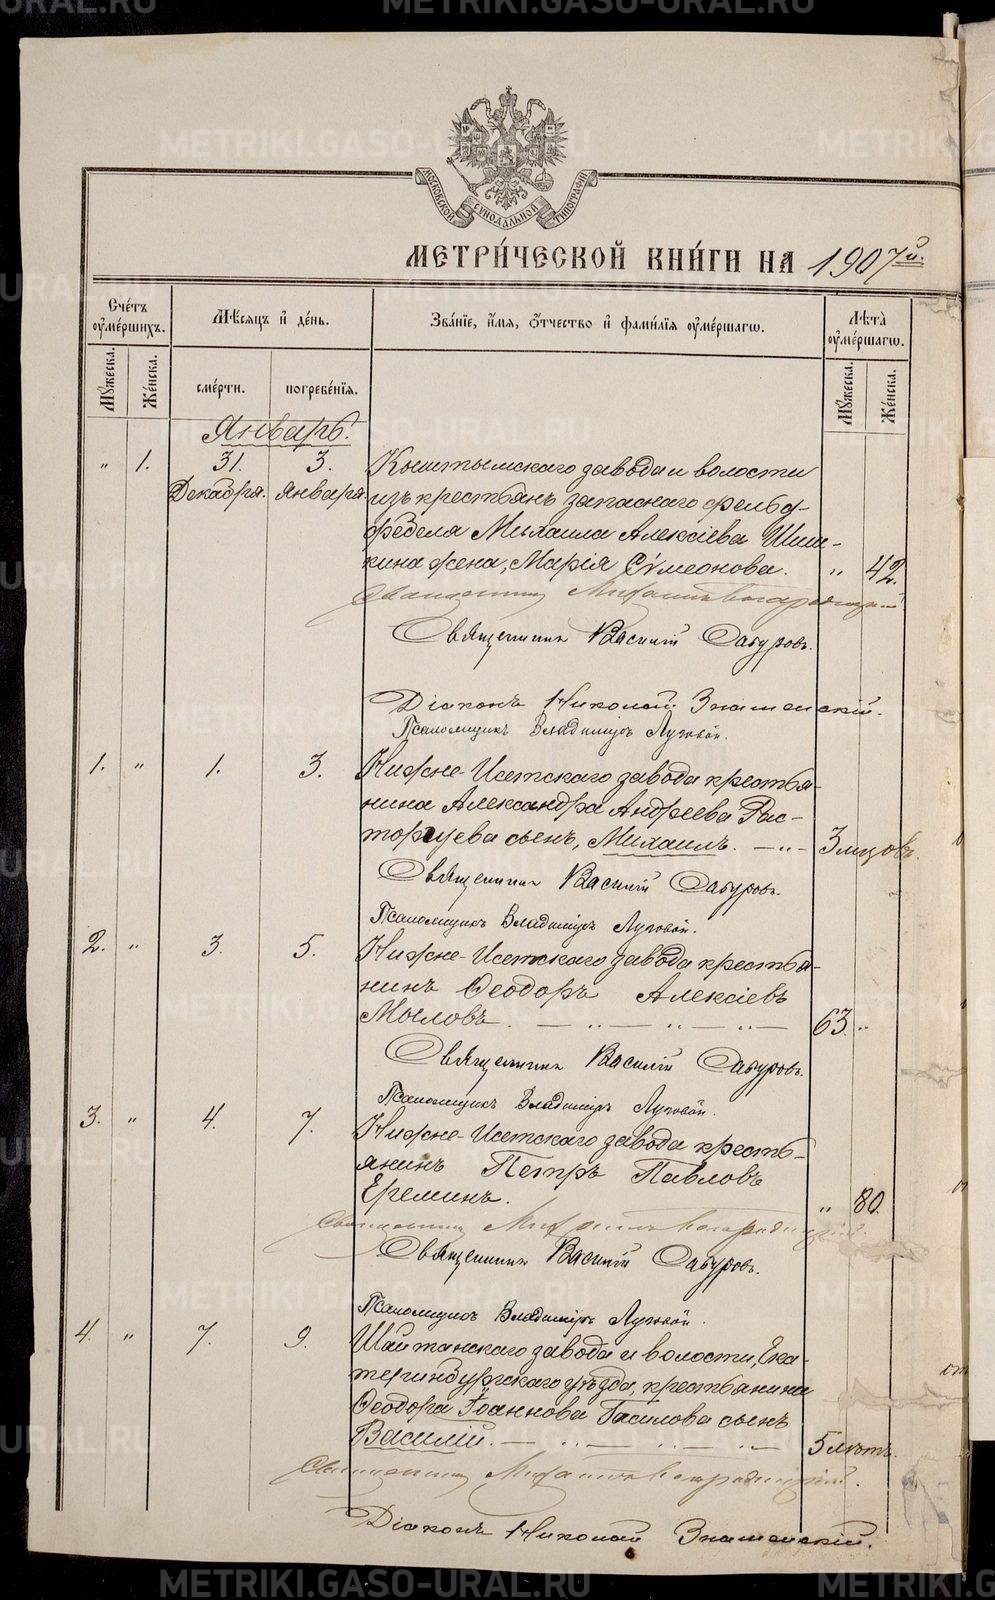 МОСКОВСКОЙ СѴНОДАЛЬНОЙ ТИПОГРАФІИ
МЕТРИ́ЧЕСКОЙ КНИ́ГИ НА 1907й.
Сче́тъ ᲂумéршихъ.
Мѣ́сяцъ и҆ де́нь.
Зва́нїе, и҆́мя, ѻ҆́тчество и҆ фами́лїя ᲂумéршагѡ.
Лѣта̀ ᲂумéршагѡ.
Мꙋ́жеска.
Же́нска.
сме́рти.
погребе́нїя.
Мꙋ́жеска.
Же́нска.
Январь.
" 1. 31. 3. Кыштымскаго завода и волости
Декабря. Января. изъ крестьянъ запаснаго фельд-
фебеля Михаила Алексіева Шиш-
кина жена, Марія Сѵмеонова. " 42.
Священникъ Михаилъ
Священникъ Василій Сабуровъ.
Діаконъ Николай Знаменскій.
Псаломщикъ Владиміръ Луговой.
1. " 1. 3. Нижне-Исетскаго завода крестья-
нина Александра Андреева Рас-
торгуева сынъ, Михаилъ. — " — 3 мцовъ.
Священникъ Василій Сабуровъ.
Псаломщикъ Владиміръ Луговой.
2. " 3. 5. Нижне-Исетскаго завода крестья-
нинъ Ѳеодоръ Алексіевъ
Мыловъ. — " — " — " — 63. "
Священникъ Василій Сабуровъ.
Псаломщикъ Владиміръ Луговой.
3. " 4. 7. Нижне-Исетскаго завода кресть-
янинъ Петръ Павловъ
Ереминъ. " 80.
Священникъ Михаилъ
Священникъ Василій Сабуровъ.
Псаломщикъ Владиміръ Луговой.
4. " 7. 9. Шайтанскаго завода и волости, Ека-
теринбургскаго уѣзда, крестьянина
Ѳеодора Іоаннова Басилова сынъ
Василій. — " — " — " — 5 лѣтъ.
Священникъ Михаилъ
Діаконъ Николай Знаменскій.
METRIKI.GASO-URAL.RU